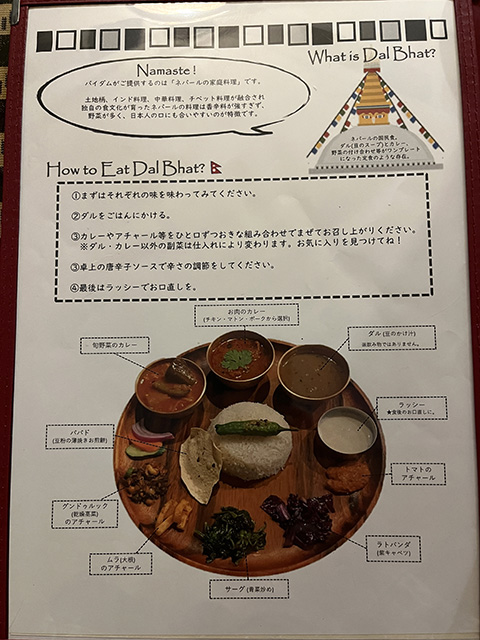 What is Dal Bhat?
Namaste !
バイダムがご提供するのは「ネパールの家庭料理」です。
土地柄、インド料理、中華料理、チベット料理が融合され
独自の食文化が育ったネパールの料理は香辛料が強すぎず、
野菜が多く、日本人の口にも合いやすいのが特徴です。
ネパールの国民食。
ダル(豆のスープ)とカレー、
野菜の付け合わせ等がワンプレート
になった定食のような存在。
How to Eat Dal Bhat?
①まずはそれぞれの味を味わってみてください。
②ダルをごはんにかける。
③カレーやアチャール等をひと口ずつおきな組み合わせでまぜてお召し上がりください。
※ダル・カレー以外の副菜は仕入れにより変わります。お気に入りを見つけてね！
③卓上の唐辛子ソースで辛さの調節をしてください。
④最後はラッシーでお口直しを。
お肉のカレー
(チキン・マトン・ポークから選択)
旬野菜のカレー
ダル (豆のかけ汁)
※飲み物ではありません。
ラッシー
★食後のお口直しに。
パパド
(豆粉の薄焼きお煎餅)
トマトの
アチャール
グンドゥルック
(乾燥葉菜)
のアチャール
ムラ(大根)
のアチャール
ラトバンダ
(紫キャベツ)
サーグ (青菜炒め)